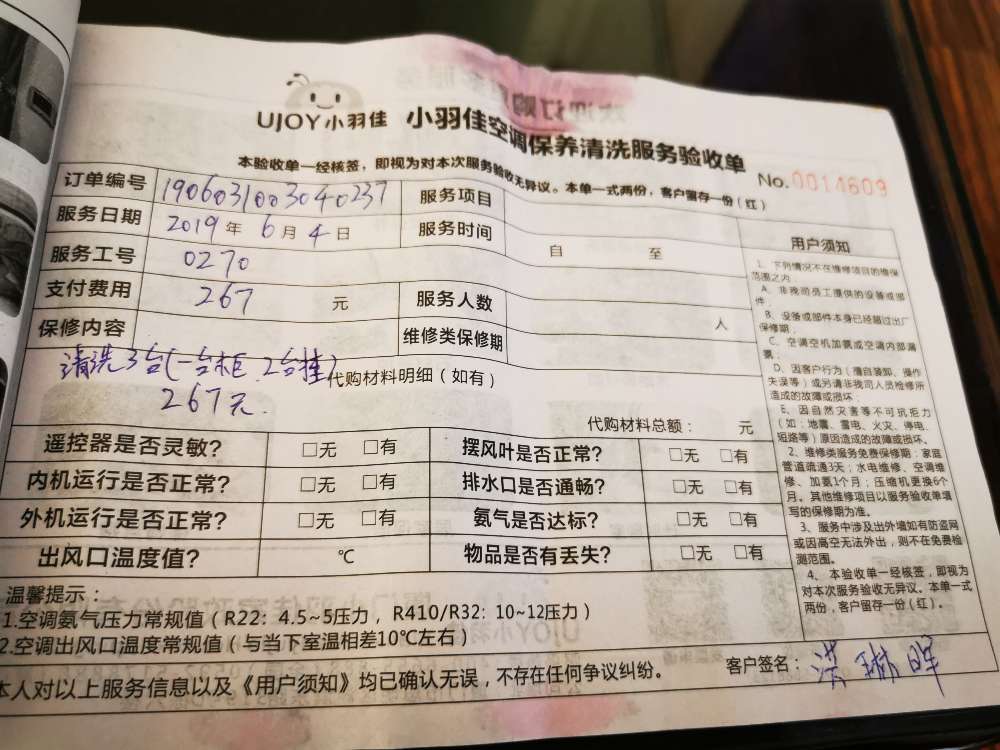 UJOY小羽佳 小羽佳空调保养清洗服务验收单
本验收单一经核签，即视为对本次服务验收无异议。本单一式两份，客户留存一份（红）
No.0014609
订单编号 1906031003040237 服务项目
服务日期 2019年6月4日 服务时间 自 至
服务工号 0270
支付费用 267 元 服务人数 人
保修内容 维修类保修期
清洗3台(一台柜、2台挂)
代购材料明细（如有）
267元.
代购材料总额： 元
遥控器是否灵敏? □无 □有 摆风叶是否正常? □无 □有
内机运行是否正常? □无 □有 排水口是否通畅? □无 □有
外机运行是否正常? □无 □有 氨气是否达标? □无 □有
出风口温度值? ℃ 物品是否有丢失? □无 □有
用户须知
1、下列情况不在维修项目的维保
范围之内
A、非我司员工提供的设备或部
件；
B、设备或部件本身已经超过出厂
保修期；
C、空调空机加氨或空调内部漏
氨；
D、因客户行为（擅自装卸、操作
失误等）或另请非我司人员检修所
造成的故障或损坏；
E、因自然灾害等不可抗拒力
（如：地震、雷电、火灾、停电、
短路等）原因造成的故障或损坏。
2、维修类服务免费保修期：家庭
管道疏通3天；水电维修、空调维
修、加氨1个月；压缩机更换6个
月。其他维修项目以服务验收单填
写的保修期为准。
3、服务中涉及出外墙如有防盗网
或因高空无法外出，则不在免费检
测范围。
4、本验收单一经核签，即视为
对本次服务验收无异议。本单一式
两份，客户留存一份（红）。
温馨提示：
1.空调氨气压力常规值（R22：4.5~5压力，R410/R32：10~12压力）
2.空调出风口温度常规值（与当下室温相差10℃左右）
本人对以上服务信息以及《用户须知》均已确认无误，不存在任何争议纠纷。
客户签名：